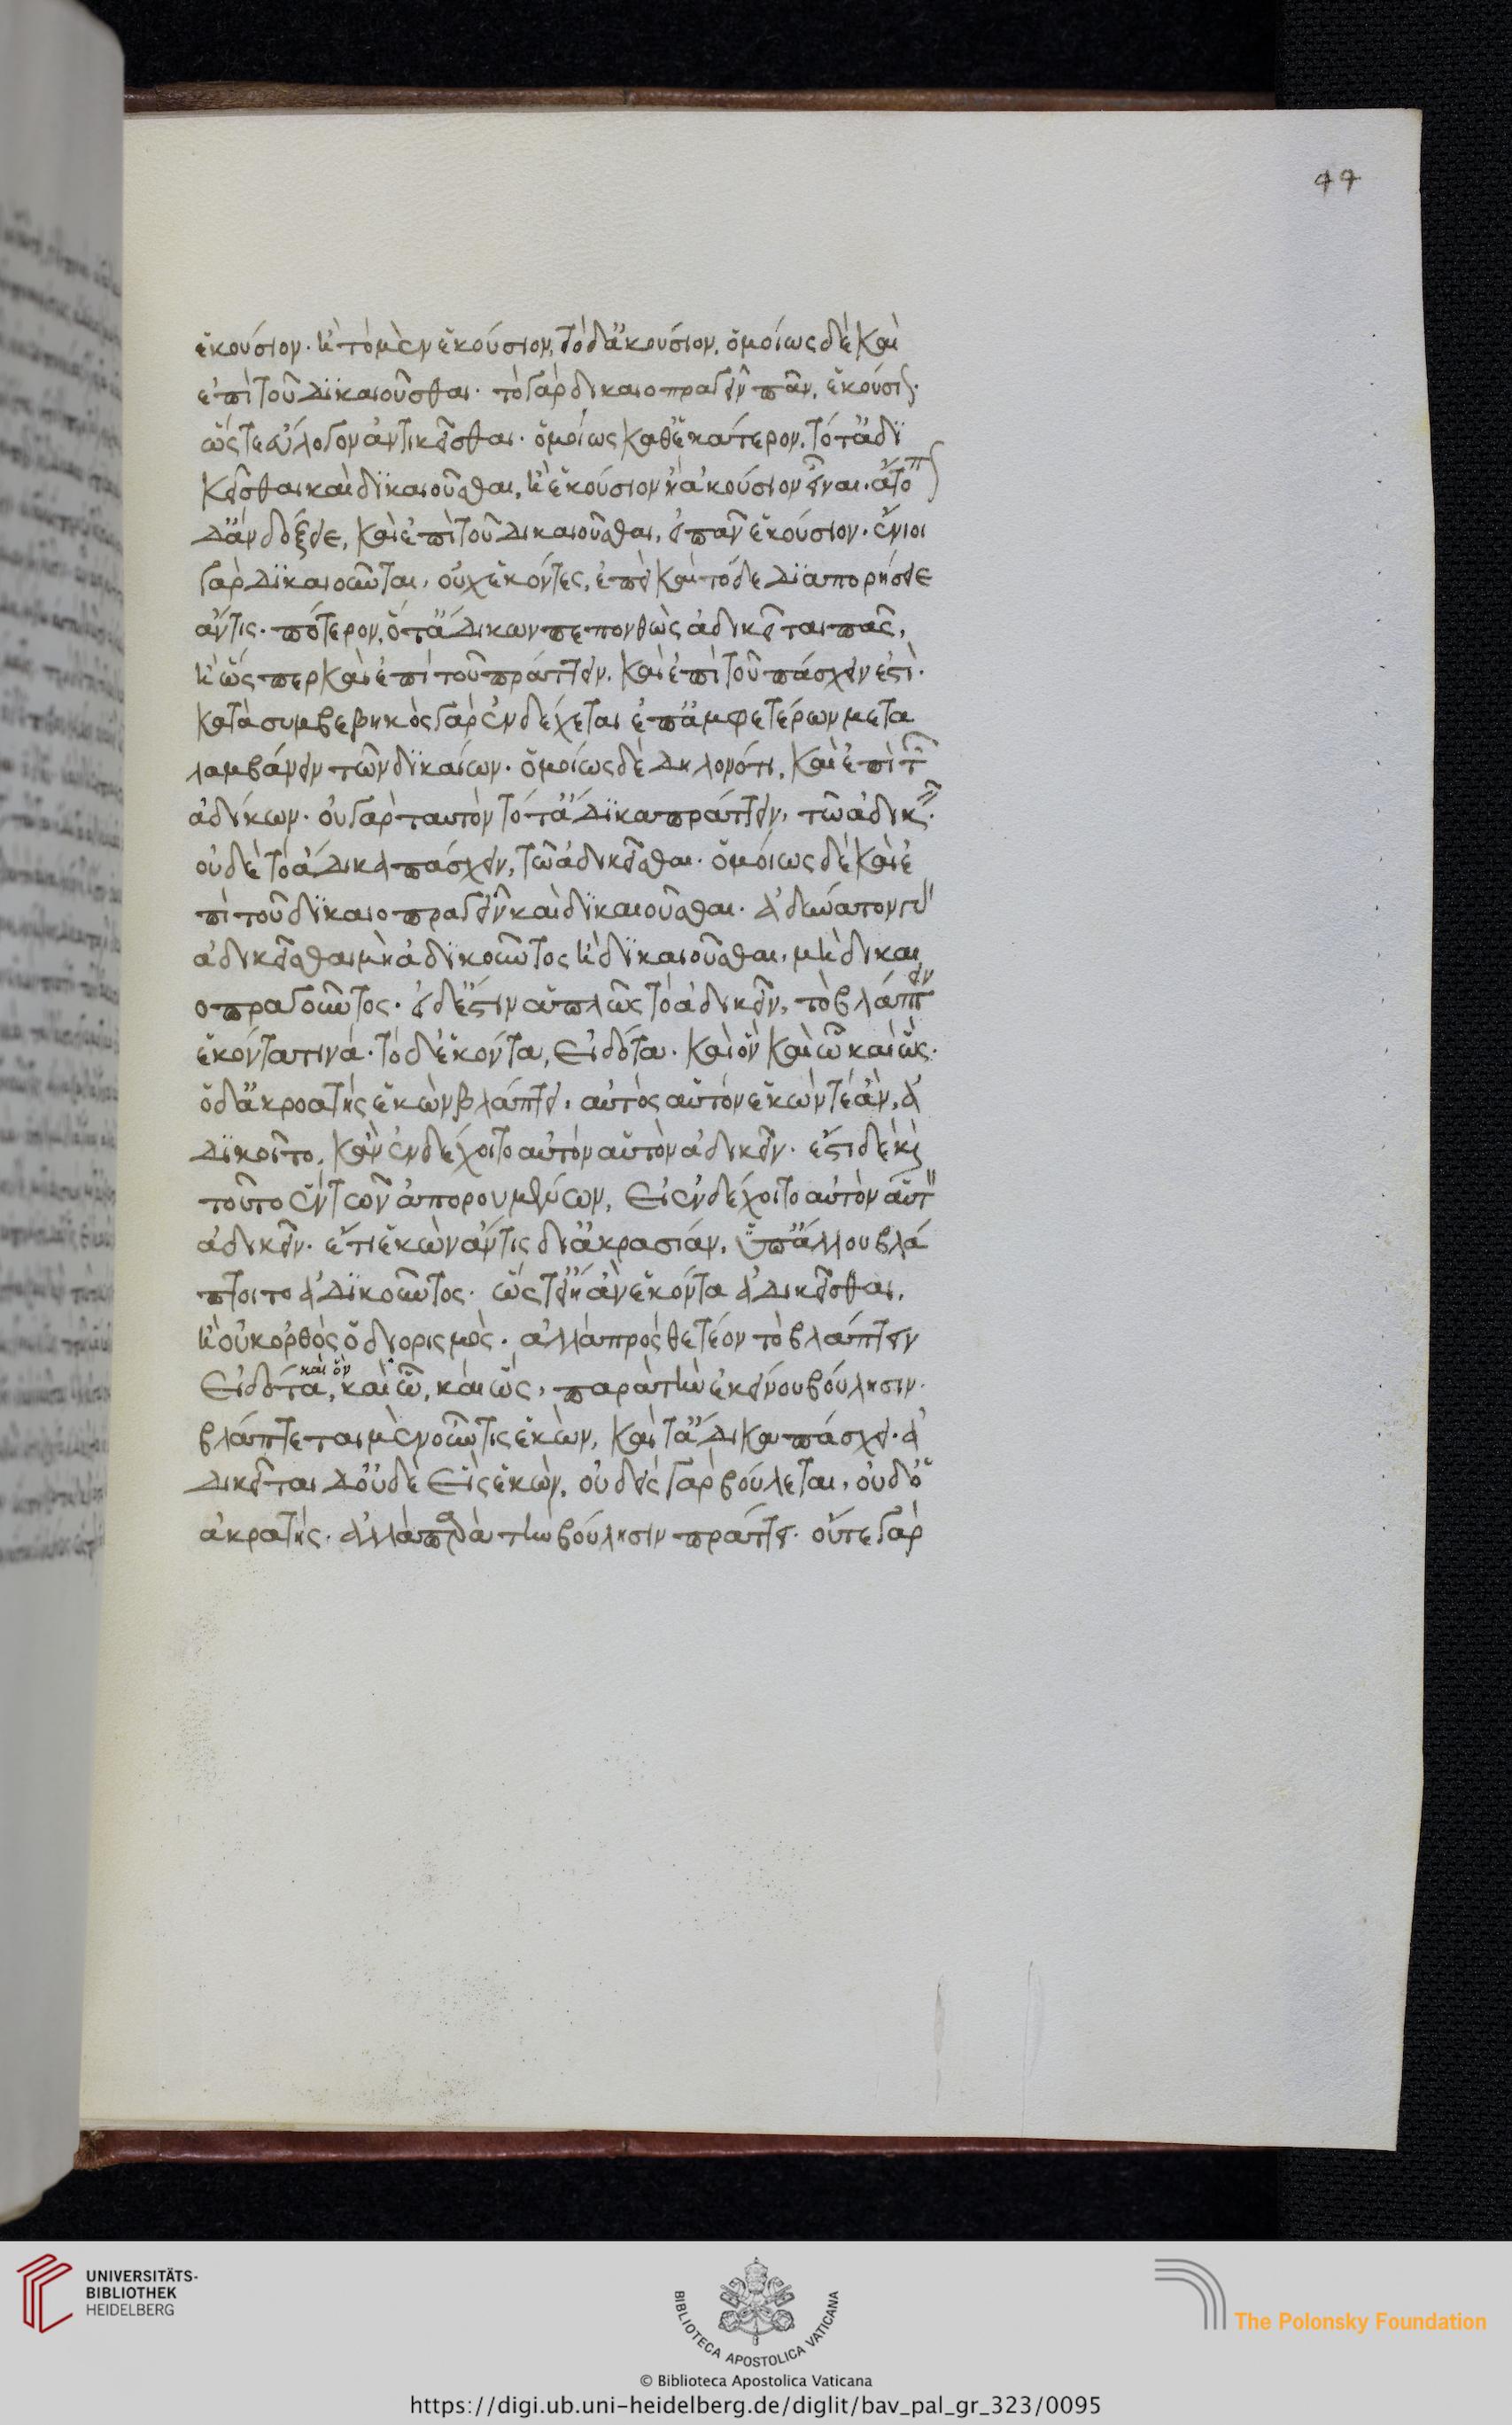 44
ἑκούσιον. ἢ τὸ μὲν ἑκούσιον, τὸ δ᾽ ἀκούσιον. ὁμοίως δὲ καὶ
ἐπὶ τοῦ δικαιοῦσθαι. τὸ γὰρ δικαιοπραγεῖν πᾶν, ἑκούσιον.
ὥστε εὔλογον ἀντικεῖσθαι. ὁμοίως καθ᾽ ἑκάτερον, τό τ᾽ ἀδι
κεῖσθαι καὶ δικαιοῦσθαι, ἢ ἑκούσιον ἢ ἀκούσιον εἶναι. ἄτοπον
δ᾽ ἂν δόξειε, καὶ ἐπὶ τοῦ δικαιοῦσθαι, εἰ πᾶν ἑκούσιον. ἔνιοι
γὰρ δικαιοῦνται, οὐχ ἑκόντες, ἐπεὶ καὶ τόδε διαπορήσειε
ἄν τις. πότερον, ὁ τὰ ἄδικων πεπονθὼς ἀδικεῖται πᾶς,
ἢ ὥσπερ καὶ ἐπὶ τοῦ πράττειν, καὶ ἐπὶ τοῦ πάσχειν ἐστὶ.
κατὰ συμβεβηκὸς γὰρ ἐνδέχεται ἐπ᾽ ἀμφοτέρων μετα
λαμβάνειν τῶν δικαίων. ὁμοίως δὲ δηλονότι, καὶ ἐπὶ τῶν
ἀδίκων. οὐ γὰρ ταυτὸν τό τἄδικα πράττειν, τῶ ἀδικεῖν.
οὐδὲ τὸ ἄδικα πάσχειν, τῶ ἀδικεῖσθαι. ὁμοίως δὲ καὶ ἐ
πὶ τοῦ δικαιοπραγεῖν καὶ δικαιοῦσθαι. ἀδύνατον γὰρ
ἀδικεῖσθαι μὴ ἀδικοῦντος ἢ δικαιοῦσθαι, μὴ δικαι
οπραγοῦντος. εἰ δέ ἐστιν ἁπλῶς τὸ ἀδικεῖν, τὸ βλάπτειν
ἑκόντα τινά. τὸ δ᾽ ἑκόντα, εἰδότα. καὶ ὃν καὶ ὧ καὶ ὥς.
ὁ δ᾽ ἀκροατὴς ἑκὼν βλάπτει, αὐτὸς αὑτόν ἑκών τε ἂν, ἀ
δικοῖτο, κἂν ἐνδέχοιτο αὐτὸν αὑτὸν ἀδικεῖν. ἔστι δὲ καὶ
τοῦτο ἕν τῶν ἀπορουμένων, εἰ ἐνδέχοιτο αὐτὸν αὑτὸν
ἀδικεῖν. ἔτι ἑκὼν ἄν τις δι᾽ ἀκρασίαν, ὑπ᾽ ἄλλου βλά
πτοιτο ἀδικοῦντος. ὥστ᾽ εἴη ἂν ἑκόντα ἀδικεῖσθαι,
ἢ οὐκ ὀρθὸς ὁ διορισμὸς. ἀλλὰ προσθετέον τὸ βλάπτειν
εἰδότα, καὶ ὃν καὶ ὧ, καὶ ὥς, παρὰ τὴν ἐκείνου βούλησιν.
βλάπτεται μὲν οὖν τις ἑκών, καὶ τἄδικα πάσχει. ἀ
δικεῖται δ᾽ οὐδὲ εἷς ἑκών, οὐδεὶς γὰρ βούλεται, οὐδ᾽ ὁ
ἀκρατής. ἀλλὰ παρὰ τὴν βούλησιν πράττει. οὔτε γὰρ
UNIVERSITÄTS-
BIBLIOTHEK
HEIDELBERG
BIBLIOTECA APOSTOLICA VATICANA
The Polonsky Foundation
© Biblioteca Apostolica Vaticana
https://digi.ub.uni-heidelberg.de/diglit/bav_pal_gr_323/0095